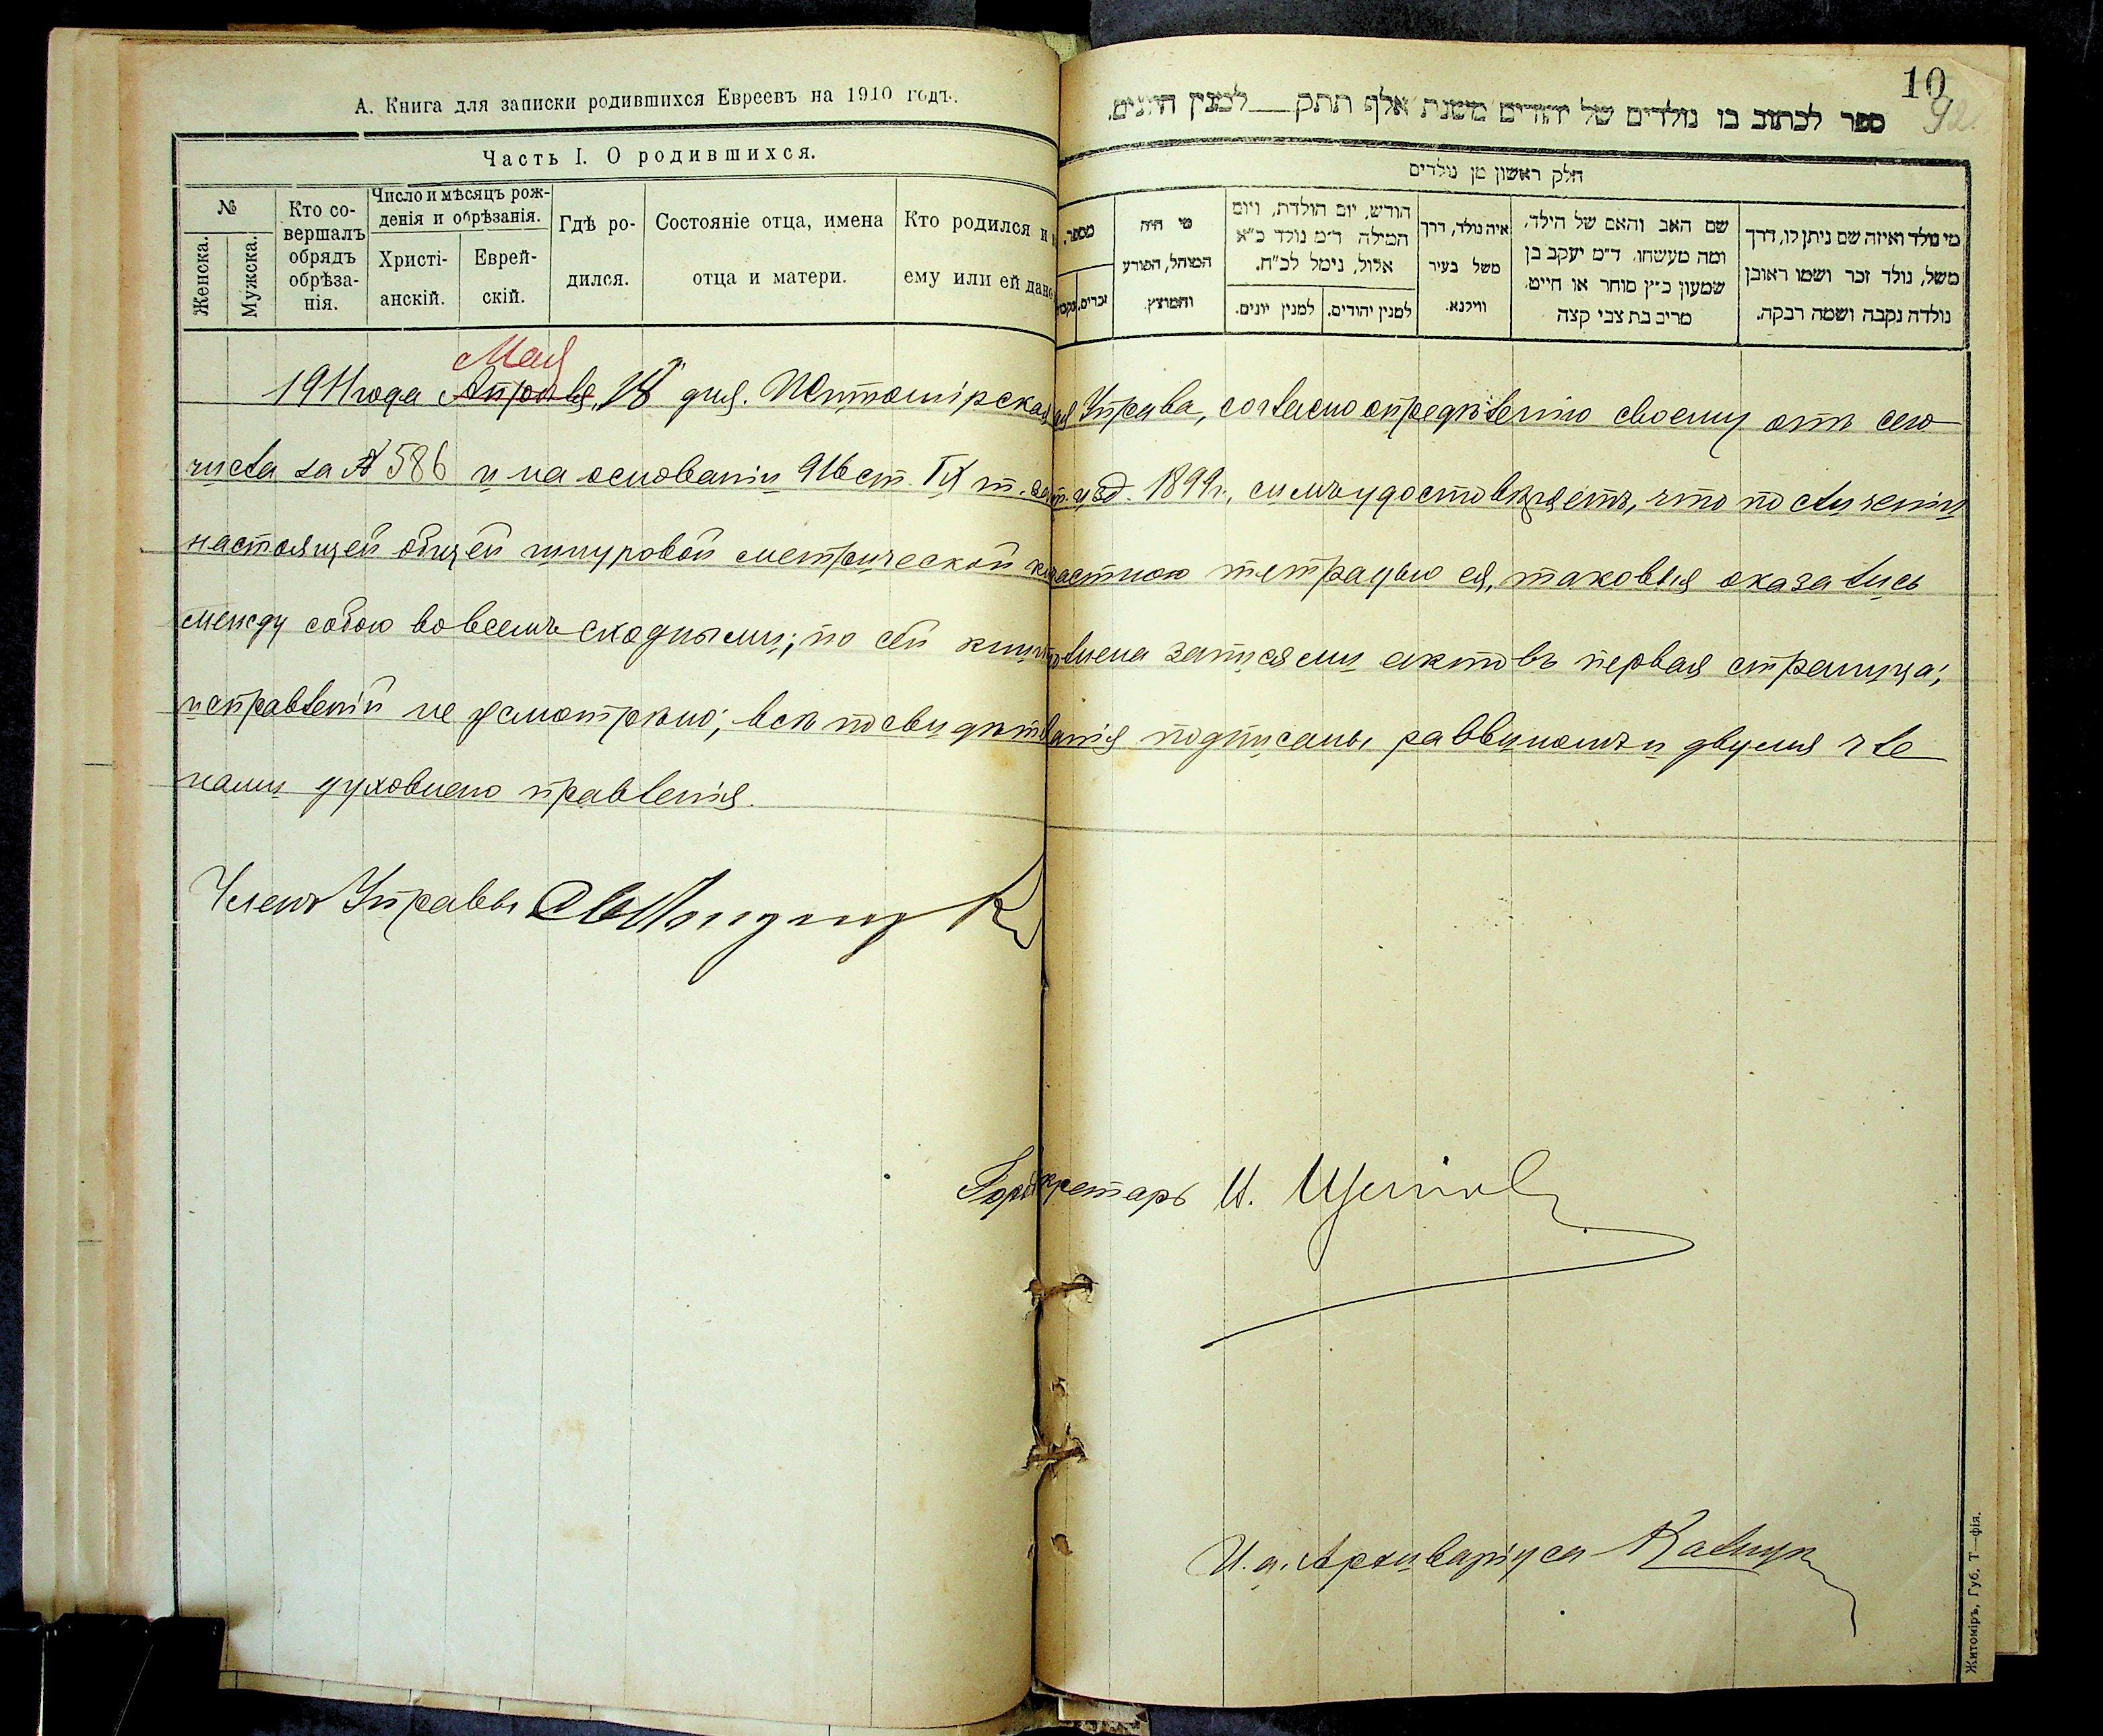 А. Книга для записки родившихся Евреевъ на 1910 годъ.
Часть I. О родившихся.
№
Женска.
Мужска.
Кто со-
вершалъ
обрядъ
обрѣза-
нія.
Число и мѣсяцъ рож-
денія и обрѣзанія.
Христі-
анскій.
Еврей-
скій.
Гдѣ ро-
дился.
Состояніе отца, имена
отца и матери.
Кто родился и
ему или ей дано
10
92
ספר לכתוב בו נולדים של יהודים משנת אלף תתק לבמנין היונים.
חלק ראשון מן נולדים
מספר.
זכרים.
מי היה
המוהל, הפורע
והמוצץ.
חודש, יום הולדת, ויום
המילה ד״מ נולד כ״א
אלול, נימל לכ״ח.
למנין יהודים.
למנין יונים.
איה נולד, דרך
משל בעיר
ווילנא.
שם האב והאם של הילד,
ומה מעשהו, ד״מ יעקב בן
שמעון כ״ץ סוחר או חייט,
מרים בת צבי קצה
מי נולד ואיזה שם ניתן לו, דרך
משל, נולד זכר ושמו ראובן
נולדה נקבה ושמה רבקה.
Мая
1911 года Апрѣля, 18 дня. Житомірская Управа, согласно опредѣленію своему отъ сего
числа за № 586 и на основаніи 916 ст. IX т. изд. 1899 г., симъ удостовѣряетъ, что по сличеніи
настоящей общей шнуровой метрической частною тетрадью ея, таковыя оказались
между собою во всемъ сходными; по сей записями актовъ первая страница;
исправленій не усмотрѣно; всѣ подписаны раввиномъ и двумя чле
нами духовнаго правленія.
Членъ Управы
Секретарь И.
И. д. Архиваріуса
Житоміръ, Губ. Т—фія.